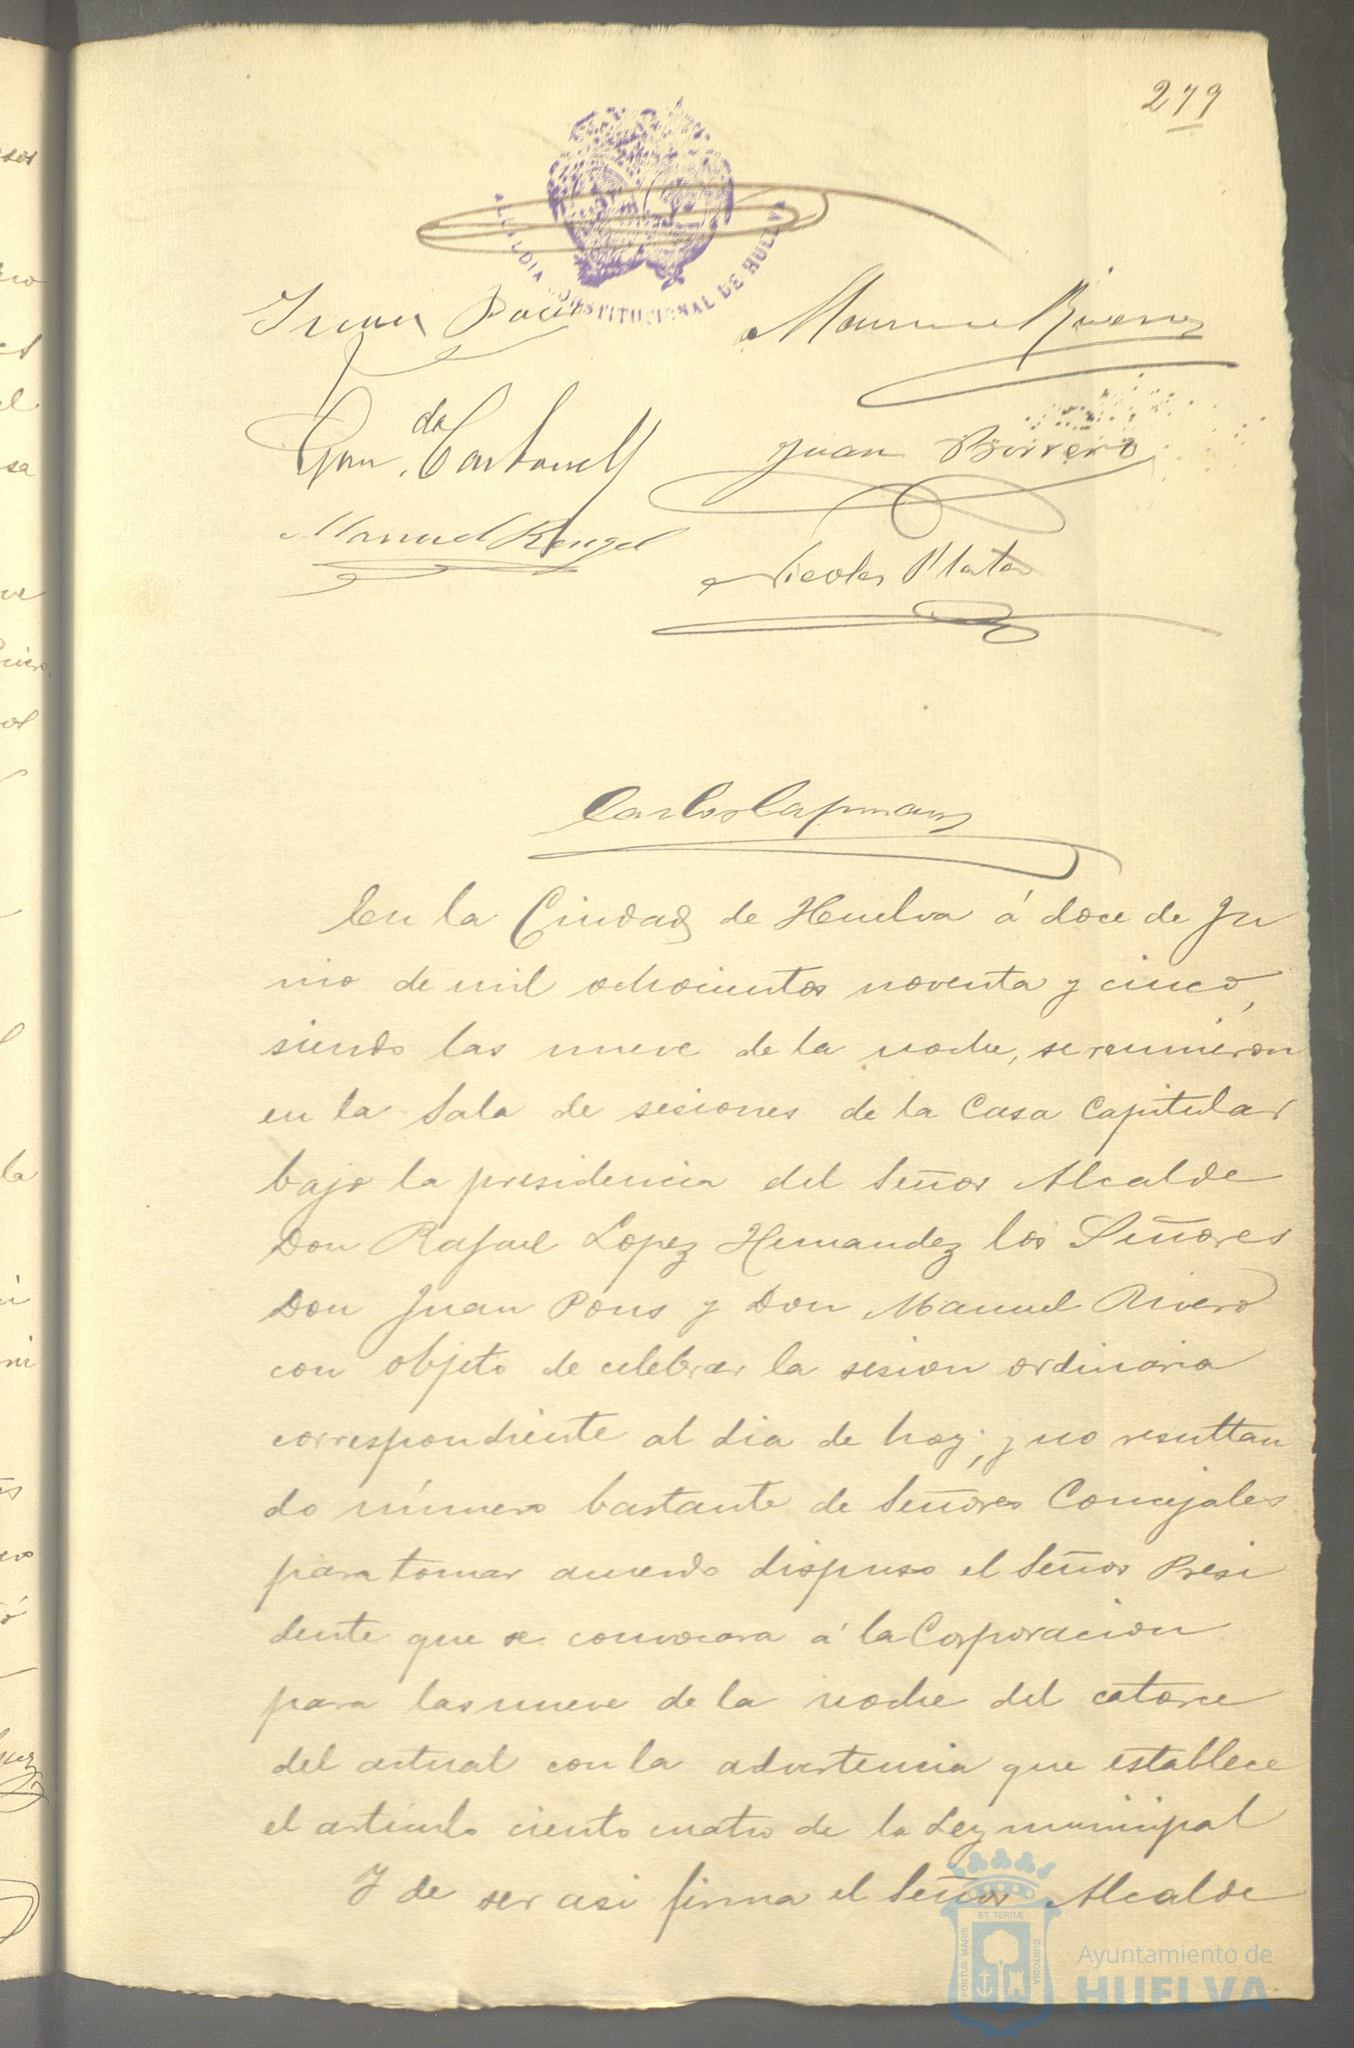 279
ALCALDIA CONSTITUCIONAL DE HUELVA
Juan Pons
Manuel Rivero
Juan Borrero
Manuel Rengel
Nicolas Plata
Carlos Capmany
En la Ciudad de Huelva á doce de Ju
nio de mil ochocientos noventa y cinco,
siendo las nueve de la noche, se reunieron
en la Sala de sesiones de la Casa Capitular
bajo la presidencia del Señor Alcalde
Don Rafael Lopez Hernandez los Señores
Don Juan Pons y Don Manuel Rivero
con objeto de celebrar la sesion ordinaria
correspondiente al dia de hoy; y no resultan
do número bastante de Señores Concejales
para tomar acuerdo dispuso el Señor Presi
dente que se convocara á la Corporacion
para las nueve de la noche del catorce
del actual con la advertencia que establece
el articulo ciento cuatro de la Ley municipal
Y de ser asi firma el Señor Alcalde
PORTUS MARIS ET TERRÆ CUSTODIA
Ayuntamiento de
HUELVA